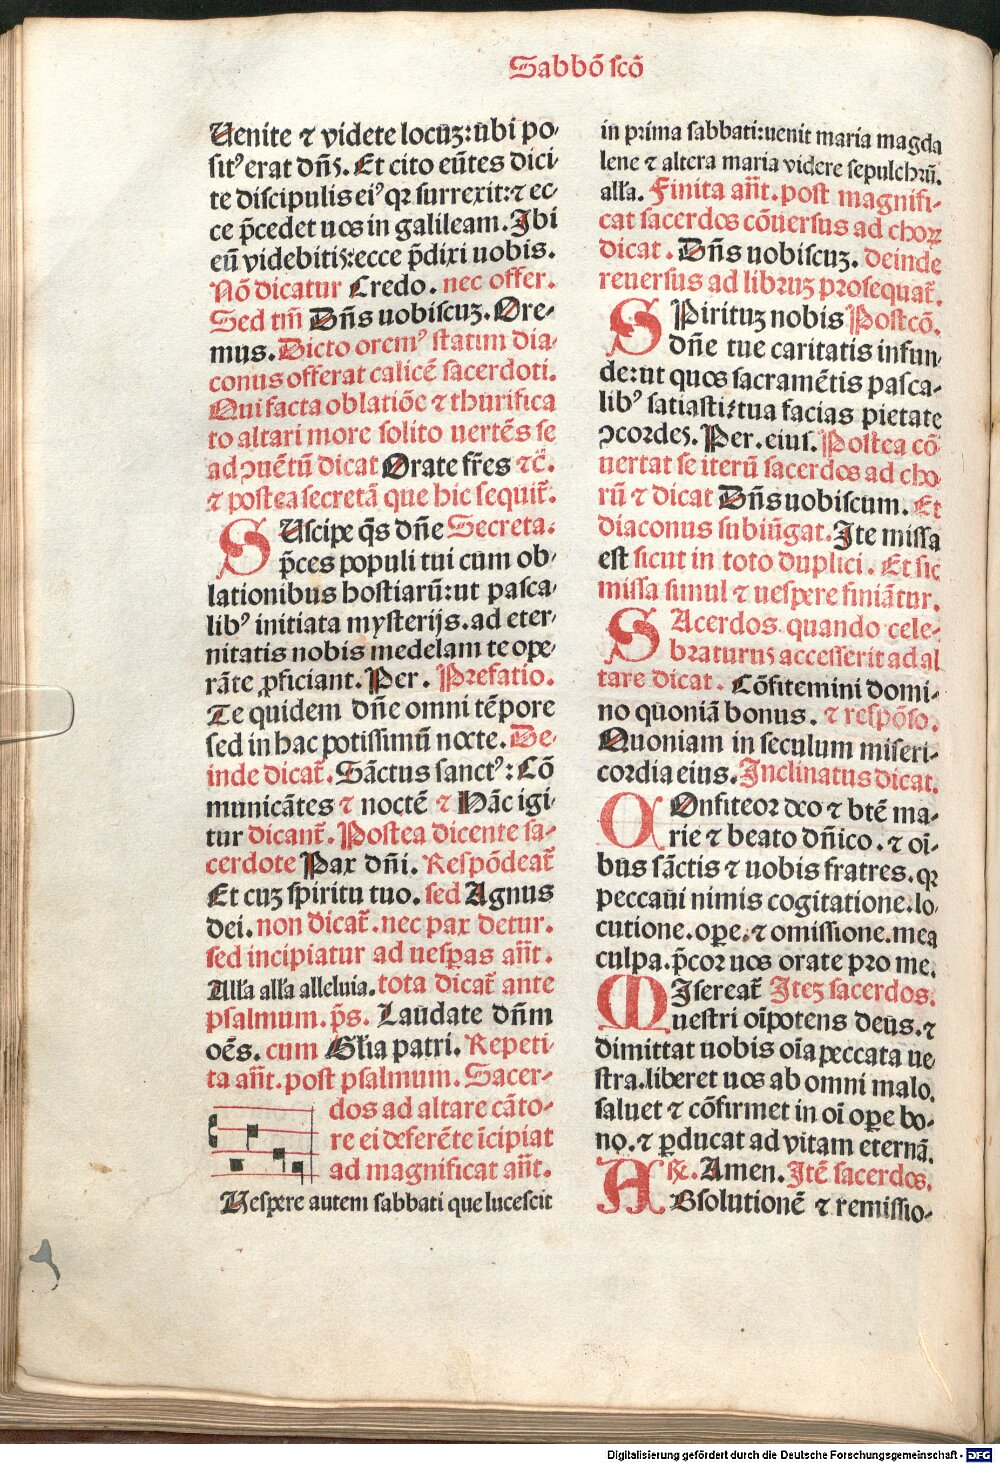 Sabbō scō
Uenite ⁊ videte locuʒ: ubi po-
sitꝰ erat dn̄s. Et cito eūtes dici-
te discipulis eiꝰ qꝛ surrexit: ⁊ ec-
ce p̄cedet uos in galileam. Ibi
eū videbitis: ecce p̄dixi uobis.
Nō dicatur Credo. nec offer.
Sed tm̄ Dn̄s uobiscuʒ. Ore-
mus. Dicto oremꝰ statim dia-
conus offerat calicē sacerdoti.
Qui facta oblatiōe ⁊ thurifica
to altari more solito uertēs se
ad ꝯuētū dicat Orate fr̄es ⁊c̄.
⁊ postea secretā que hic sequit̄.
SUscipe q̄s dn̄e Secreta.
p̄ces populi tui cum ob-
lationibus hostiarū: ut pasca-
libꝰ initiata mysterijs. ad eter-
nitatis nobis medelam te ope-
rāte ꝓficiant. Per. Prefatio.
Te quidem dn̄e omni tēpore
sed in hac potissimū nocte. De-
inde dicat̄. Sāctus sanctꝰ: Cō
municātes ⁊ noctē ⁊ Hāc igi-
tur dicant̄. Postea dicente sa-
cerdote Pax dn̄i. Respōdeat̄
Et cuʒ spiritu tuo. sed Agnus
dei. non dicat̄. nec pax detur.
sed incipiatur ad uesꝑas an̄t.
All̄a all̄a alleluia. tota dicat̄ ante
psalmum. p̄s. Laudate dn̄m
oēs. cum Gl̄ia patri. Repeti-
ta an̄t. post psalmum. Sacer-
dos ad altare cāto-
re ei deferēte īcipiat
ad magnificat an̄t.
Uespere autem sabbati que lucescit
in prima sabbati: uenit maria magda
lene ⁊ altera maria videre sepulchrū.
all̄a. Finita an̄t. post magnifi-
cat sacerdos cōuersus ad choꝝ
dicat. Dn̄s uobiscuʒ. deinde
reuersus ad libruʒ prosequat̄.
SPirituʒ nobis Postcō.
dn̄e tue caritatis infun-
de: ut quos sacramētis pasca-
libꝰ satiasti: tua facias pietate
ꝯcordes. Per. eius. Postea cō
uertat se iterū sacerdos ad cho
rū ⁊ dicat Dn̄s uobiscum. Et
diaconus subiūgat. Ite missa
est sicut in toto duplici. Et sic
missa simul ⁊ uespere finiātur.
SAcerdos quando cele-
braturus accesserit ad al
tare dicat. Cōfitemini domi-
no quoniā bonus. ⁊ respōso.
Quoniam in seculum miseri-
cordia eius. Inclinatus dicat.
COnfiteor deo ⁊ btē ma-
rie ⁊ beato dn̄ico. ⁊ oī-
bus sāctis ⁊ uobis fratres. qꝛ
peccaui nimis cogitatione. lo-
cutione. oꝑe. ⁊ omissione. mea
culpa. p̄cor uos orate pro me.
MIsereat̄ Iteʒ sacerdos.
uestri oīpotens deus. ⁊
dimittat uobis oīa peccata ue
stra. liberet uos ab omni malo.
saluet ⁊ cōfirmet in oī oꝑe bo-
no. ⁊ ꝑducat ad vitam eternā.
℟. Amen. Itē sacerdos.
ABsolutionē ⁊ remissio-
Digitalisierung gefördert durch die Deutsche Forschungsgemeinschaft - DFG